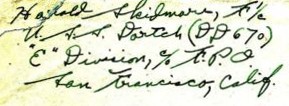 Harold Skidmore, F 1/c
U.S.S. Dortch (DD 670)
"E" Division, c/o F.P.O
San Francisco, Calif.